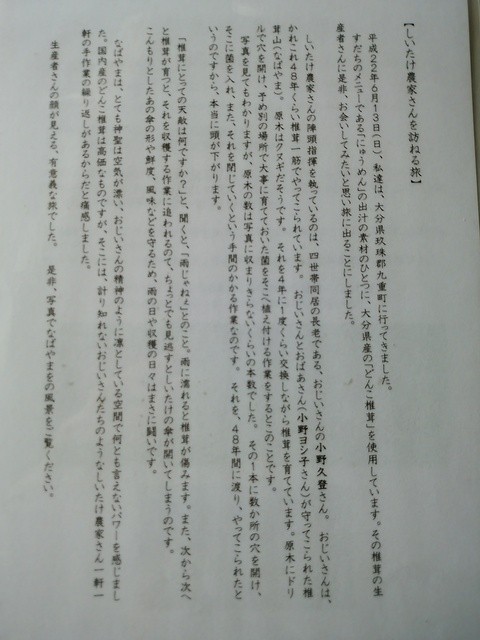 【しいたけ農家さんを訪ねる旅】
平成22年6月13日(日)、私達は、大分県玖珠郡九重町に行ってきました。
すだちのメニューである「にゅうめん」の出汁の素材のひとつに、大分県産の「どんこ椎茸」を使用しています。その椎茸の生
産者さんに是非、お会いしてみたいと思い旅に出ることにしました。
しいたけ農家さんの陣頭指揮を執っているのは、四世帯同居の長老である、おじいさんの小野久登さん。おじいさんは、
かれこれ48年くらい椎茸一筋でやってこられています。おじいさんとおばあさん(小野ヨシ子さん)が守ってこられた椎
茸山(なばやま)。原木はクヌギだそうです。それを4年に1度くらい交換しながら椎茸を育てています。原木にドリ
ルで穴を開け、予め別の場所で大事に育てておいた菌をそこへ植え付ける作業をするとのことです。
写真を見てもわかりますが、原木の数は写真に収まりきらないくらいの本数でした。その1本に数か所の穴を開け、
そこに菌を入れ、また、それを閉じていくという手間のかかる作業なのです。それを、48年間に渡り、やってこられたと
いうのですから、本当に頭が下がります。
「椎茸にとっての天敵は何ですか?」と、聞くと、「雨じゃねぇ」とのこと。雨に濡れると椎茸が傷みます。また、次から次へ
と椎茸が育つと、それを収穫する作業に追われるので、ちょっとでも見逃すとしいたけの傘が開いてしまうのです。
こんもりとしたあの傘の形や鮮度、風味などを守るため、雨の日や収穫の日々はまさに闘いです。
なばやまは、とても神聖な空気が漂い、おじいさんの精神のように凛としている空間で何とも言えないパワーを感じまし
た。国内産のどんこ椎茸は高価なものですが、そこには、計り知れないおじいさんたちのようなしいたけ農家さん一軒一
軒の手作業の繰り返しがあるからだと痛感しました。
生産者さんの顔が見える、有意義な旅でした。是非、写真でなばやまの風景をご覧ください。